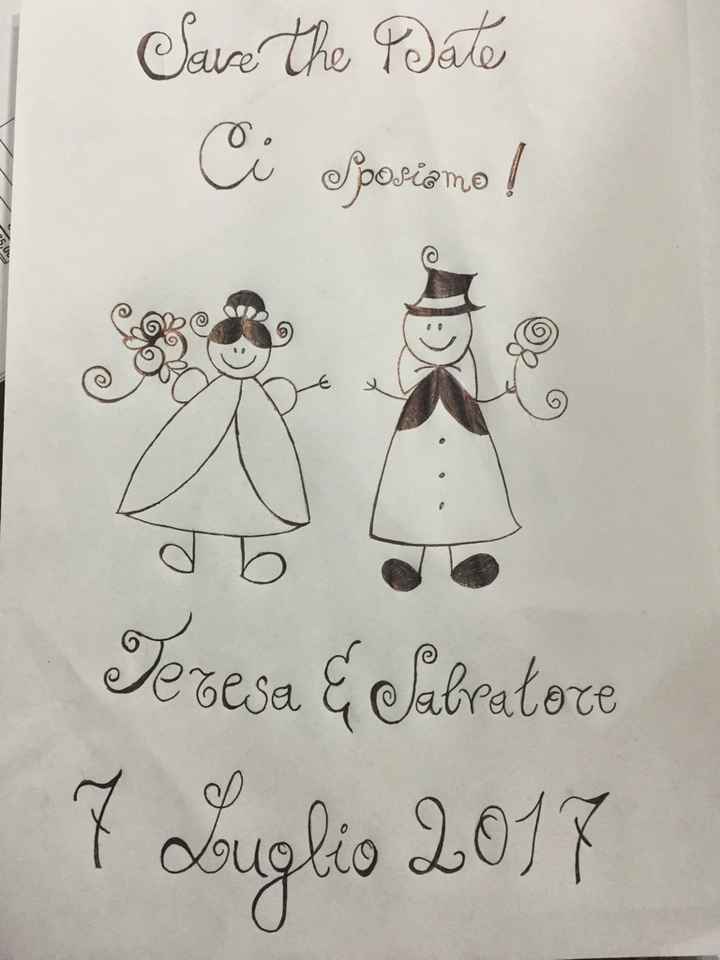 Save the Date
Ci sposiamo!
Teresa & Salvatore
7 Luglio 2017